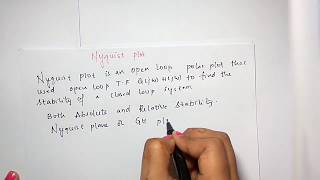 Nyquist plot
Nyquist plot is an open loop polar plot that
used open loop T.F G(jω)H(jω) to find the
stability of a closed loop system
Both Absolute and Relative Stability.
Nyquist plane or GH pl